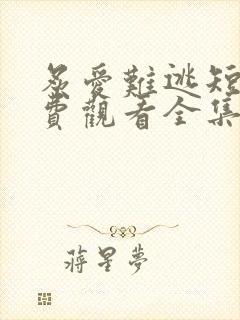 惎愛難逃短
費觀看全集
蔣星夢